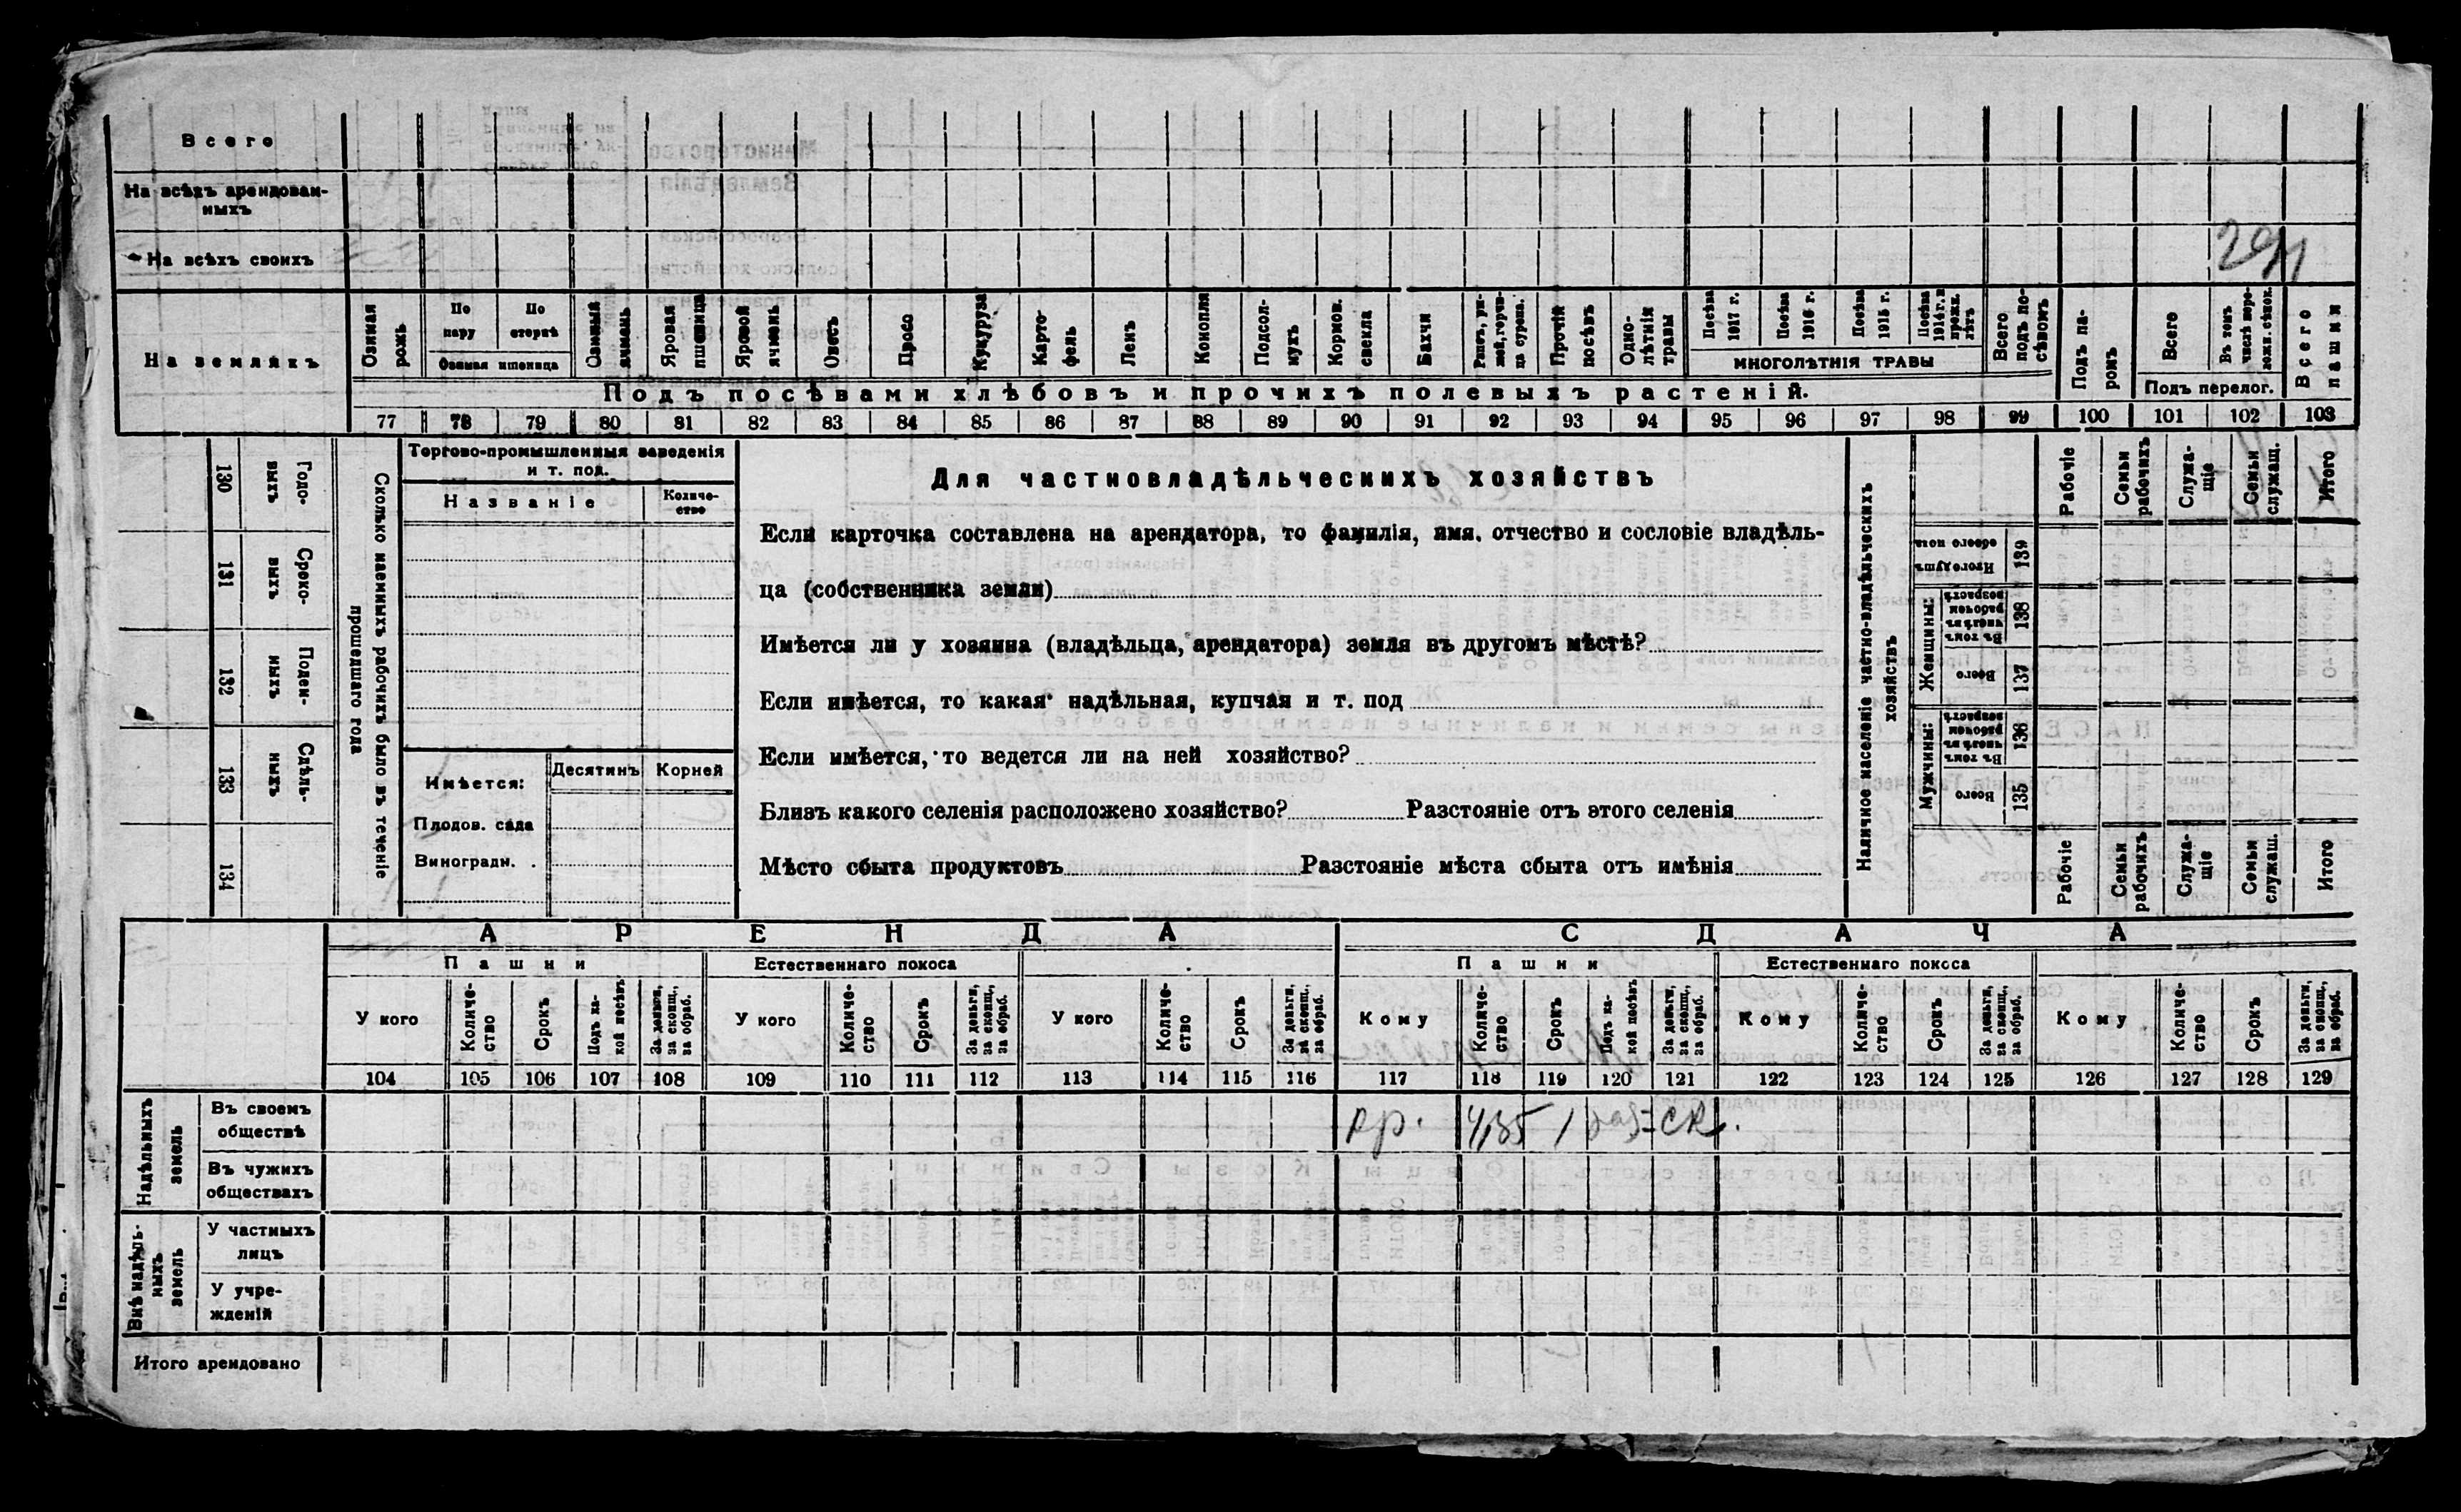 Всего
На всѣхъ арендован-
ныхъ
На всѣхъ своихъ
291
На земляхъ
Озимая рожь
По пару
По стернѣ
Озимая пшеница
Озимый ячмень
Яровая пшеница
Яровой ячмень
Овесъ
Просо
Кукуруза
Карто-
фель
Ленъ
Конопля
Подсол-
нухъ
Кормов. свекла
Бахчи
Прочій посѣвъ
Одно-
лѣтнія травы
Посѣва 1917 г.
Посѣва 1916 г.
Посѣва 1915 г.
Посѣва 1914 г. и прежн. лѣтъ
МНОГОЛѢТНІЯ ТРАВЫ
Всего подъ по-
сѣвомъ
Подъ па-
ромъ
Всего
Въ томъ числѣ пере-
лож. сѣнок.
Подъ перелог.
Всего пашни
Подъ посѣвами хлѣбовъ и прочихъ полевыхъ растеній.
77 78 79 80 81 82 83 84 85 86 87 88 89 90 91 92 93 94 95 96 97 98 99 100 101 102 103
130 Годо-
выхъ
131 Сроко-
выхъ
132 Поден-
ныхъ
133 Сдѣль-
ныхъ
134
Сколько наемныхъ рабочихъ было въ теченіе
прошедшаго года
Торгово-промышленныя заведенія
и т. под.
Названіе
Количе-
ство
Имѣется:
Десятинъ
Корней
Плодов. сада
Виноградн.
Для частновладѣльческихъ хозяйствъ
Если карточка составлена на арендатора, то фамилія, имя, отчество и сословіе владѣль-
ца (собственника земли)
Имѣется ли у хозяина (владѣльца, арендатора) земля въ другомъ мѣстѣ?
Если имѣется, то какая надѣльная, купчая и т. под
Если имѣется, то ведется ли на ней хозяйство?
Близъ какого селенія расположено хозяйство? Разстояніе отъ этого селенія
Мѣсто сбыта продуктовъ Разстояніе мѣста сбыта отъ имѣнія
Наличное населеніе частно-владѣльческихъ
хозяйствъ
Рабочіе
Семьи рабочихъ
Служа-
щіе
Семьи служащ.
Итого
Итого душъ обоего пола 139
Женщины:
Въ томъ числѣ въ рабочемъ возрастѣ 138
Всего 137
Мужчины:
Въ томъ числѣ въ рабочемъ возрастѣ 136
Всего 135
Рабочіе
Семьи рабочихъ
Служа-
щіе
Семьи служащ.
Итого
АРЕНДА
СДАЧА
Пашни
Естественнаго покоса
Пашни
Естественнаго покоса
У кого
Количе-
ство
Срокъ
Подъ ка-
кой посѣвъ
За деньги, за скопщ., за обраб.
У кого
Количе-
ство
Срокъ
За деньги, за скопщ., за обраб.
У кого
Количе-
ство
Срокъ
За деньги, за скопщ., за обраб.
Кому
Количе-
ство
Срокъ
Подъ ка-
кой посѣвъ
За деньги, за скопщ., за обраб.
Кому
Количе-
ство
Срокъ
За деньги, за скопщ., за обраб.
Кому
Количе-
ство
Срокъ
За деньги, за скопщ., за обраб.
104 105 106 107 108 109 110 111 112 113 114 115 116 117 118 119 120 121 122 123 124 125 126 127 128 129
Надѣльныхъ земель
Въ своемъ
обществѣ
кр. 1 ск.
Въ чужихъ
обществахъ
Внѣ надѣль-
ныхъ земель
У частныхъ
лицъ
У учре-
жденій
Итого арендовано